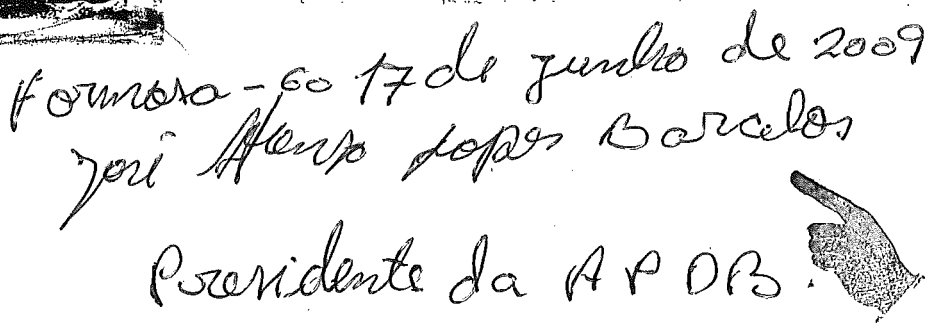 Formosa - Go 17 de junho de 2009
José Afonso Lopes Barcelos
Presidente da A P D B.